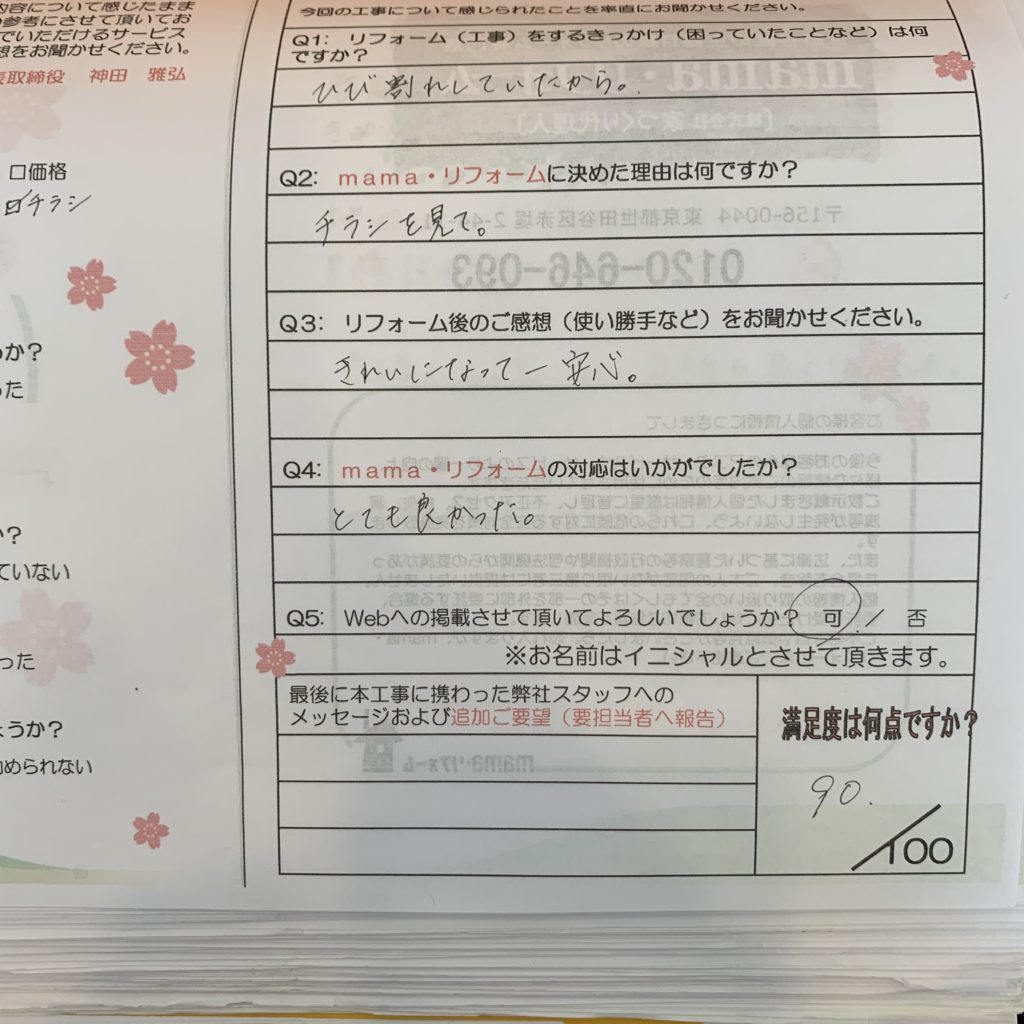 内容について感じたまま
参考にさせて頂いてお
でいただけるサービス
想をお聞かせください。
取締役 神田 雅弘
口価格
チラシ
か?
った
か?
ていない
った
ょうか?
められない
今回の工事について感じられたことを率直にお聞かせください。
Q1: リフォーム(工事)をするきっかけ(困っていたことなど)は何
ですか?
ひび割れしていたから。
Q2: mama・リフォームに決めた理由は何ですか?
チラシを見て。
〒156-0044 東京都世田谷区赤堤
0120-646-093
Q3: リフォーム後のご感想(使い勝手など)をお聞かせください。
きれいになって一安心。
お客様の個人情報につきまして
Q4: mama・リフォームの対応はいかがでしたか?
とても良かった。
Q5: Webへの掲載させて頂いてよろしいでしょうか? 可 / 否
※お名前はイニシャルとさせて頂きます。
最後に本工事に携わった弊社スタッフへの
メッセージおよび追加ご要望(要担当者へ報告)
mama・リフォーム
満足度は何点ですか?
90.
/100